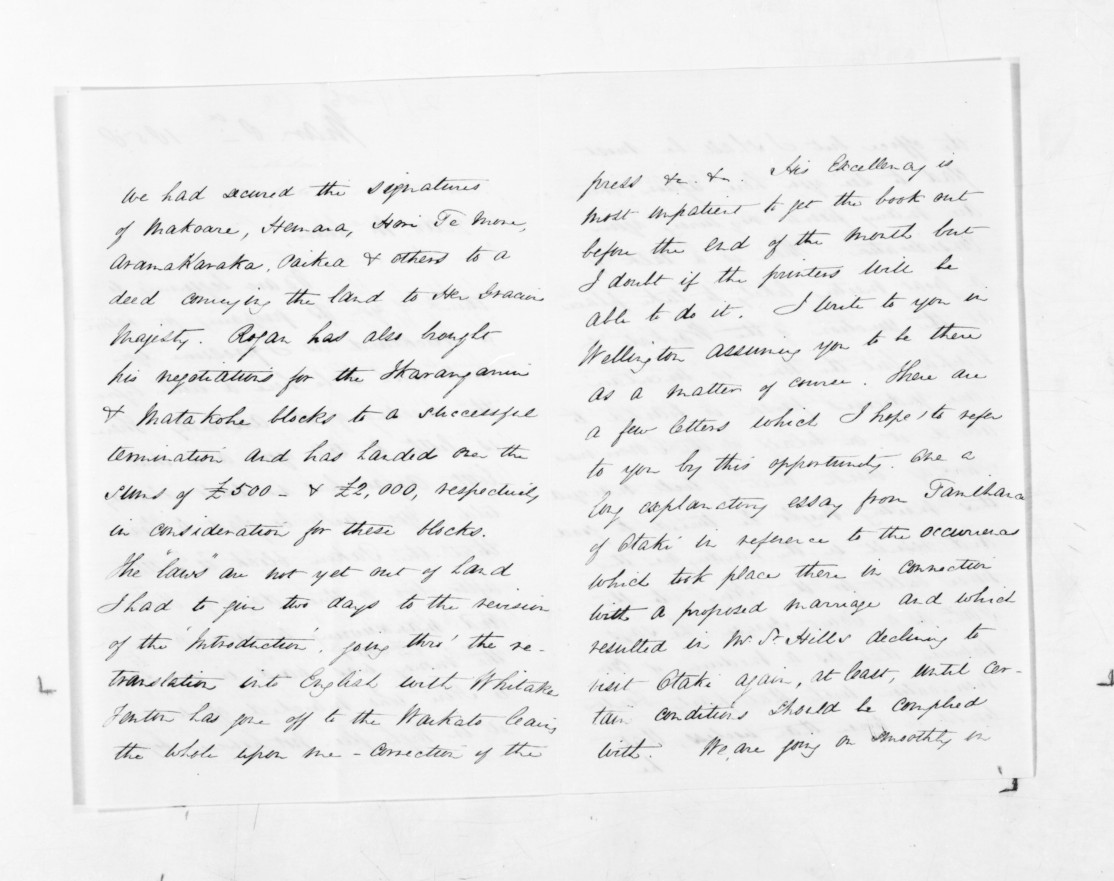 We had secured the signatures
of Makoare, Hemara, Hori Te More,
Aramakaraka, Paikea & others to a
deed conveying the land to Her Gracious
Majesty. Rogan has also brought
his negotiations for the
& Matakohe blocks to a successful
termination and has handed over the
sums of £500 - & £2,000, respectively
in consideration for these blocks.
The "laws" are not yet out of hand
I had to give two days to the revision
of the 'Introduction', going thro' the re-
translation into English with Whitaker
Fenton has gone off to the Waikato leaving
the whole upon me - correction of the
press &c. &c. His Excellency is
most impatient to get the book out
before the end of the month but
I doubt if the printers will be
able to do it. I write to you in
Wellington assuming you to be there
as a matter of course. There are
a few letters which I hope to refer
to you by this opportunity. One a
long explanatory essay from Tamihana
of Otaki in reference to the occurrences
which took place there in connection
with a proposed marriage and which
resulted in Mr St Hill's declining to
visit Otaki again, at least, until cer-
tain conditions should be complied
with. We are going on smoothly in